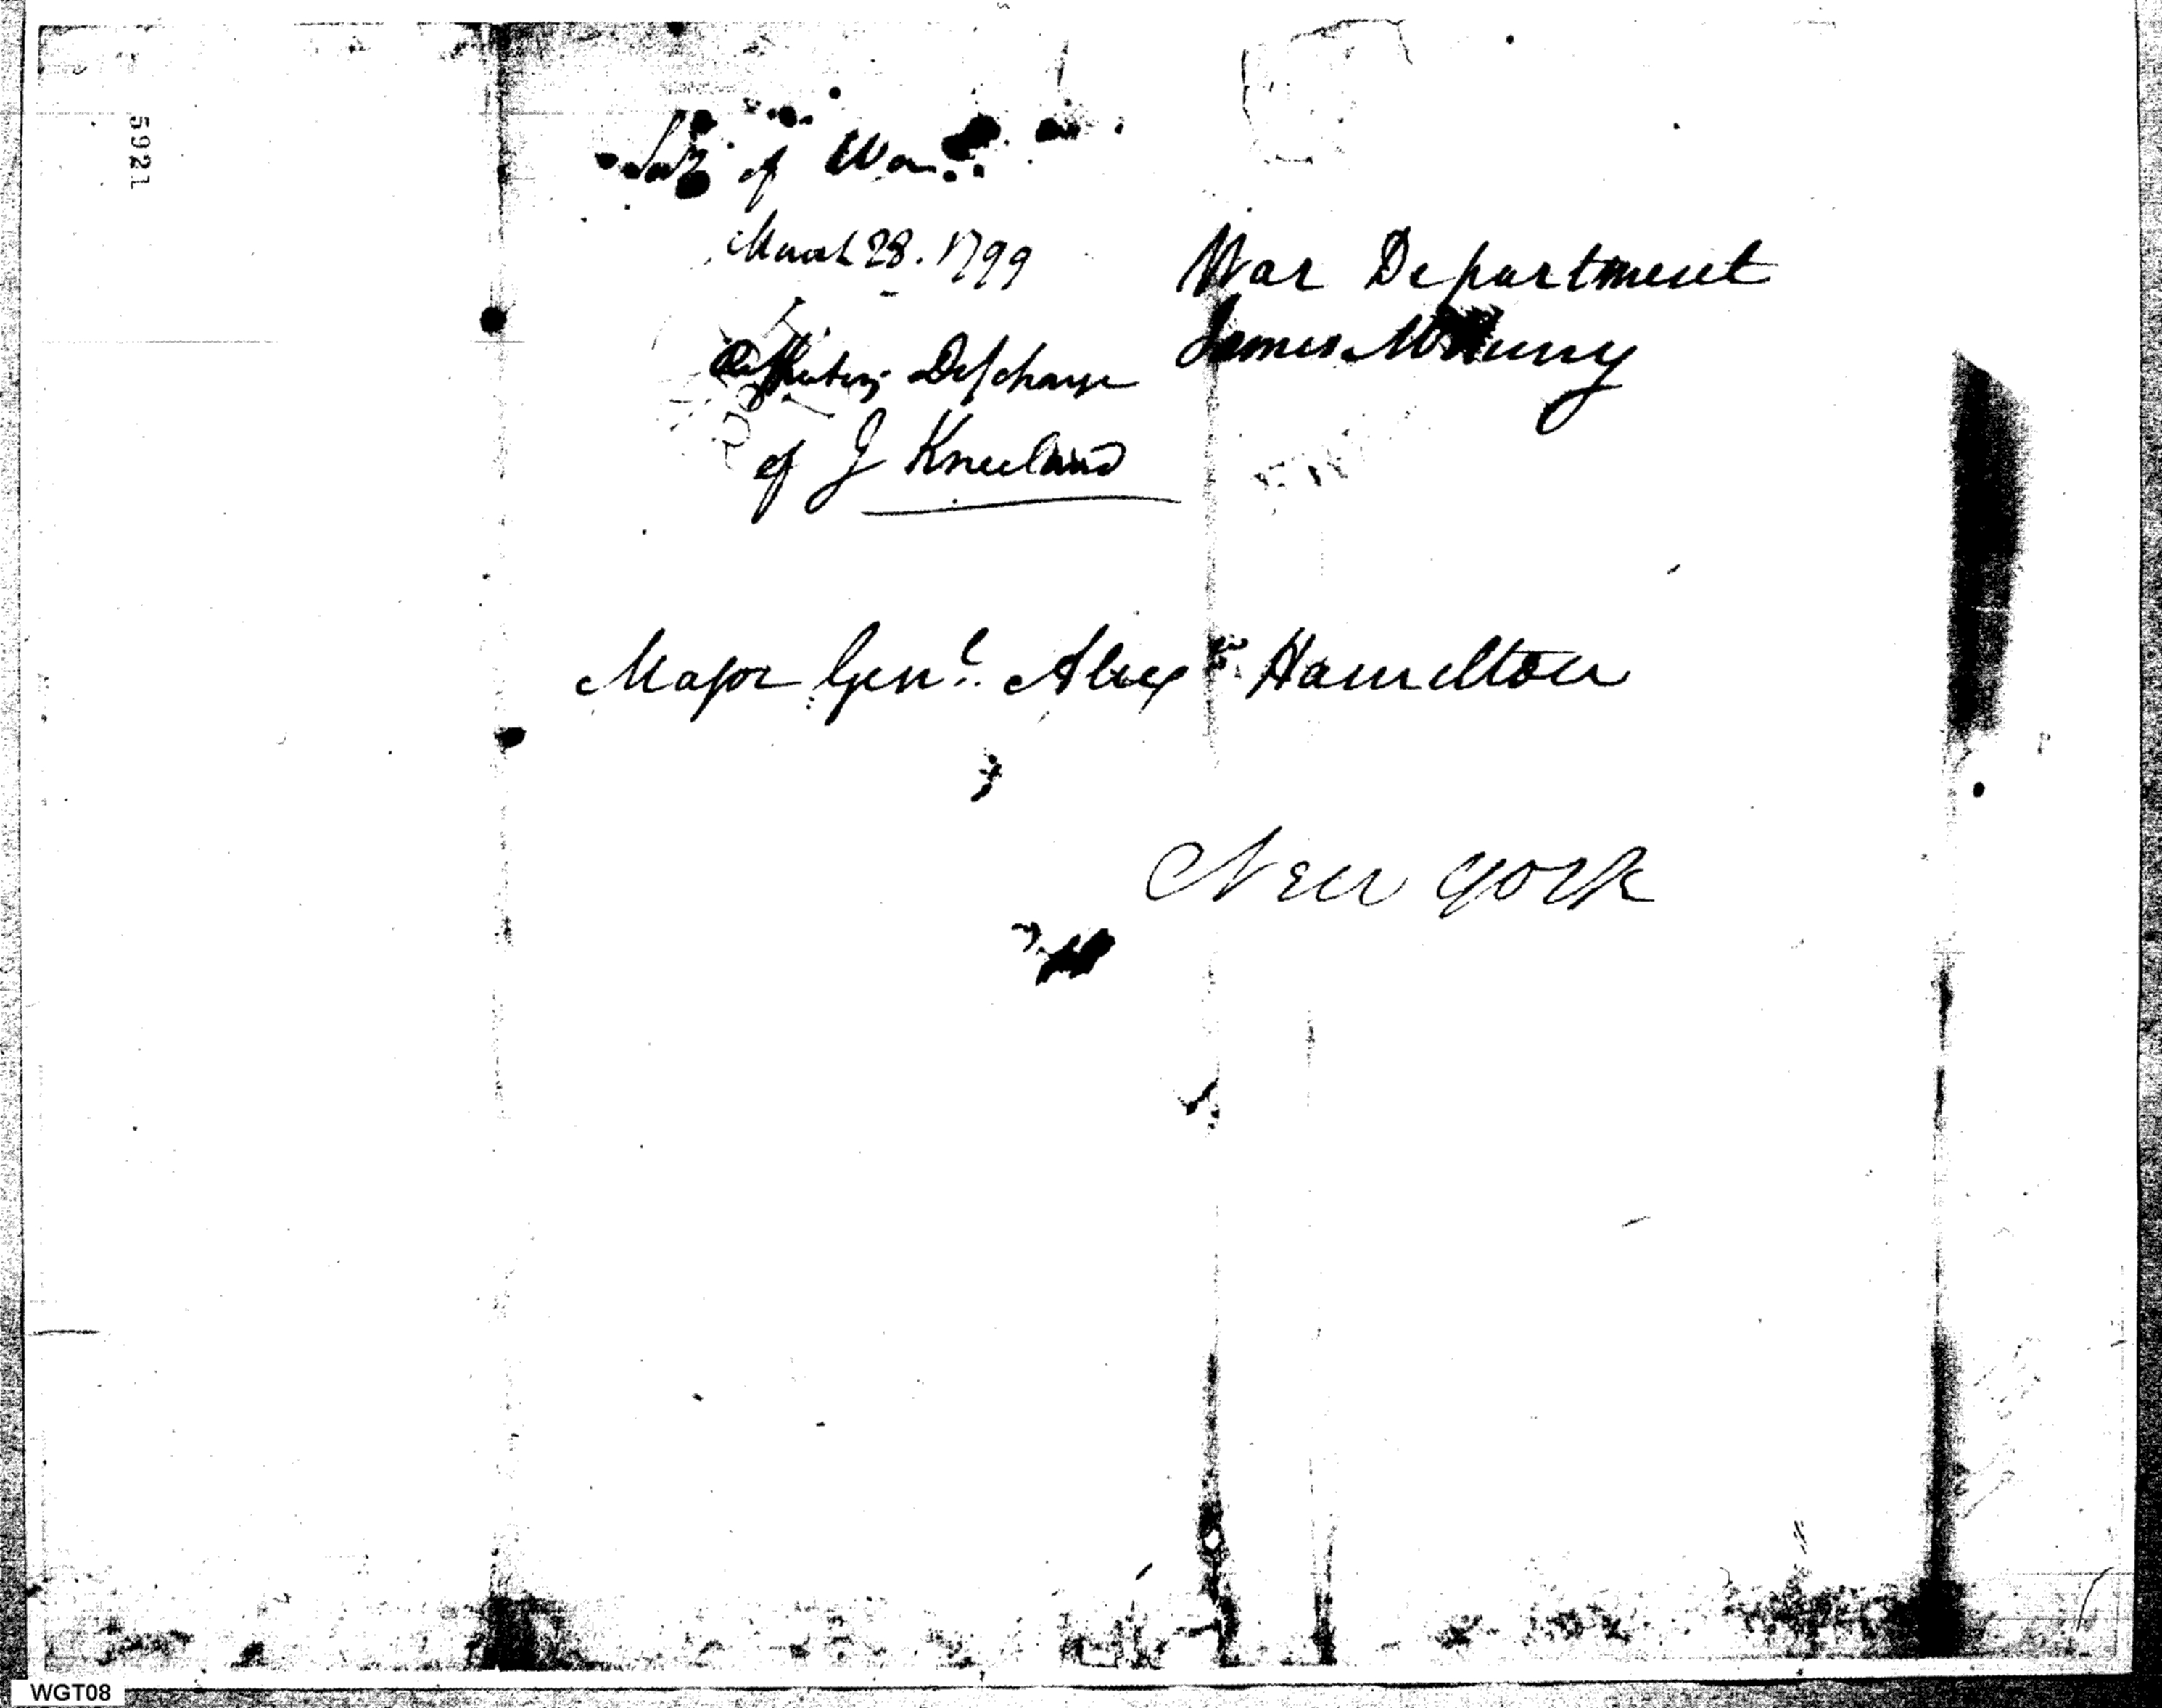 5921
Secy of War
March 28. 1799
Discharge
of J Kneeland
War Department
James McHenry
Major Genl. Alexr. Hamilton
New York
WGT08